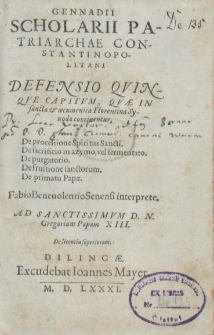 GENNADII
SCHOLARII PA-
TRIARCHAE CON-
STANTINOPO-
LITANI
De 135
DEFENSIO QVIN-
QVE CAPITVM, QVÆ IN
sancta & œcumenica Florentina Sy-
nodo continentur,
De processione Spiritus Sancti.
De sacrificio in azymo, vel fermentato.
De purgatorio.
De fruitione sanctorum.
De primatu Papæ.
Fabio Beneuolentio Senensi interprete.
AD SANCTISSIMVM D. N.
Gregorium Papam XIII.
De licentia superiorum.
DILINGÆ,
Excudebat Ioannes Mayer.
M. D. LXXXI.
EX LIBRIS